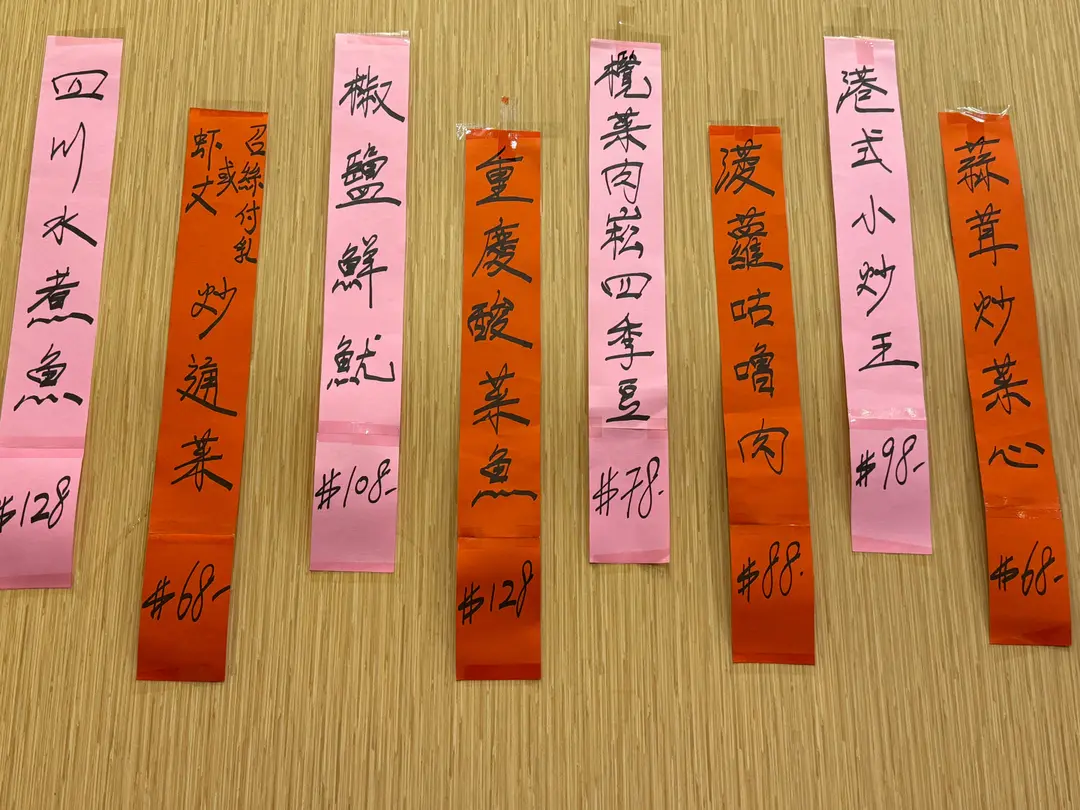 四川水煮魚
$128
召絲付乳
或
虾丈
炒通菜
$68-
椒鹽鮮魷
$108-
重慶酸菜魚
$128
欖菜肉崧四季豆
$78-
菠蘿咕嚕肉
$88-
港式小炒王
$98-
蒜茸炒菜心
$68-